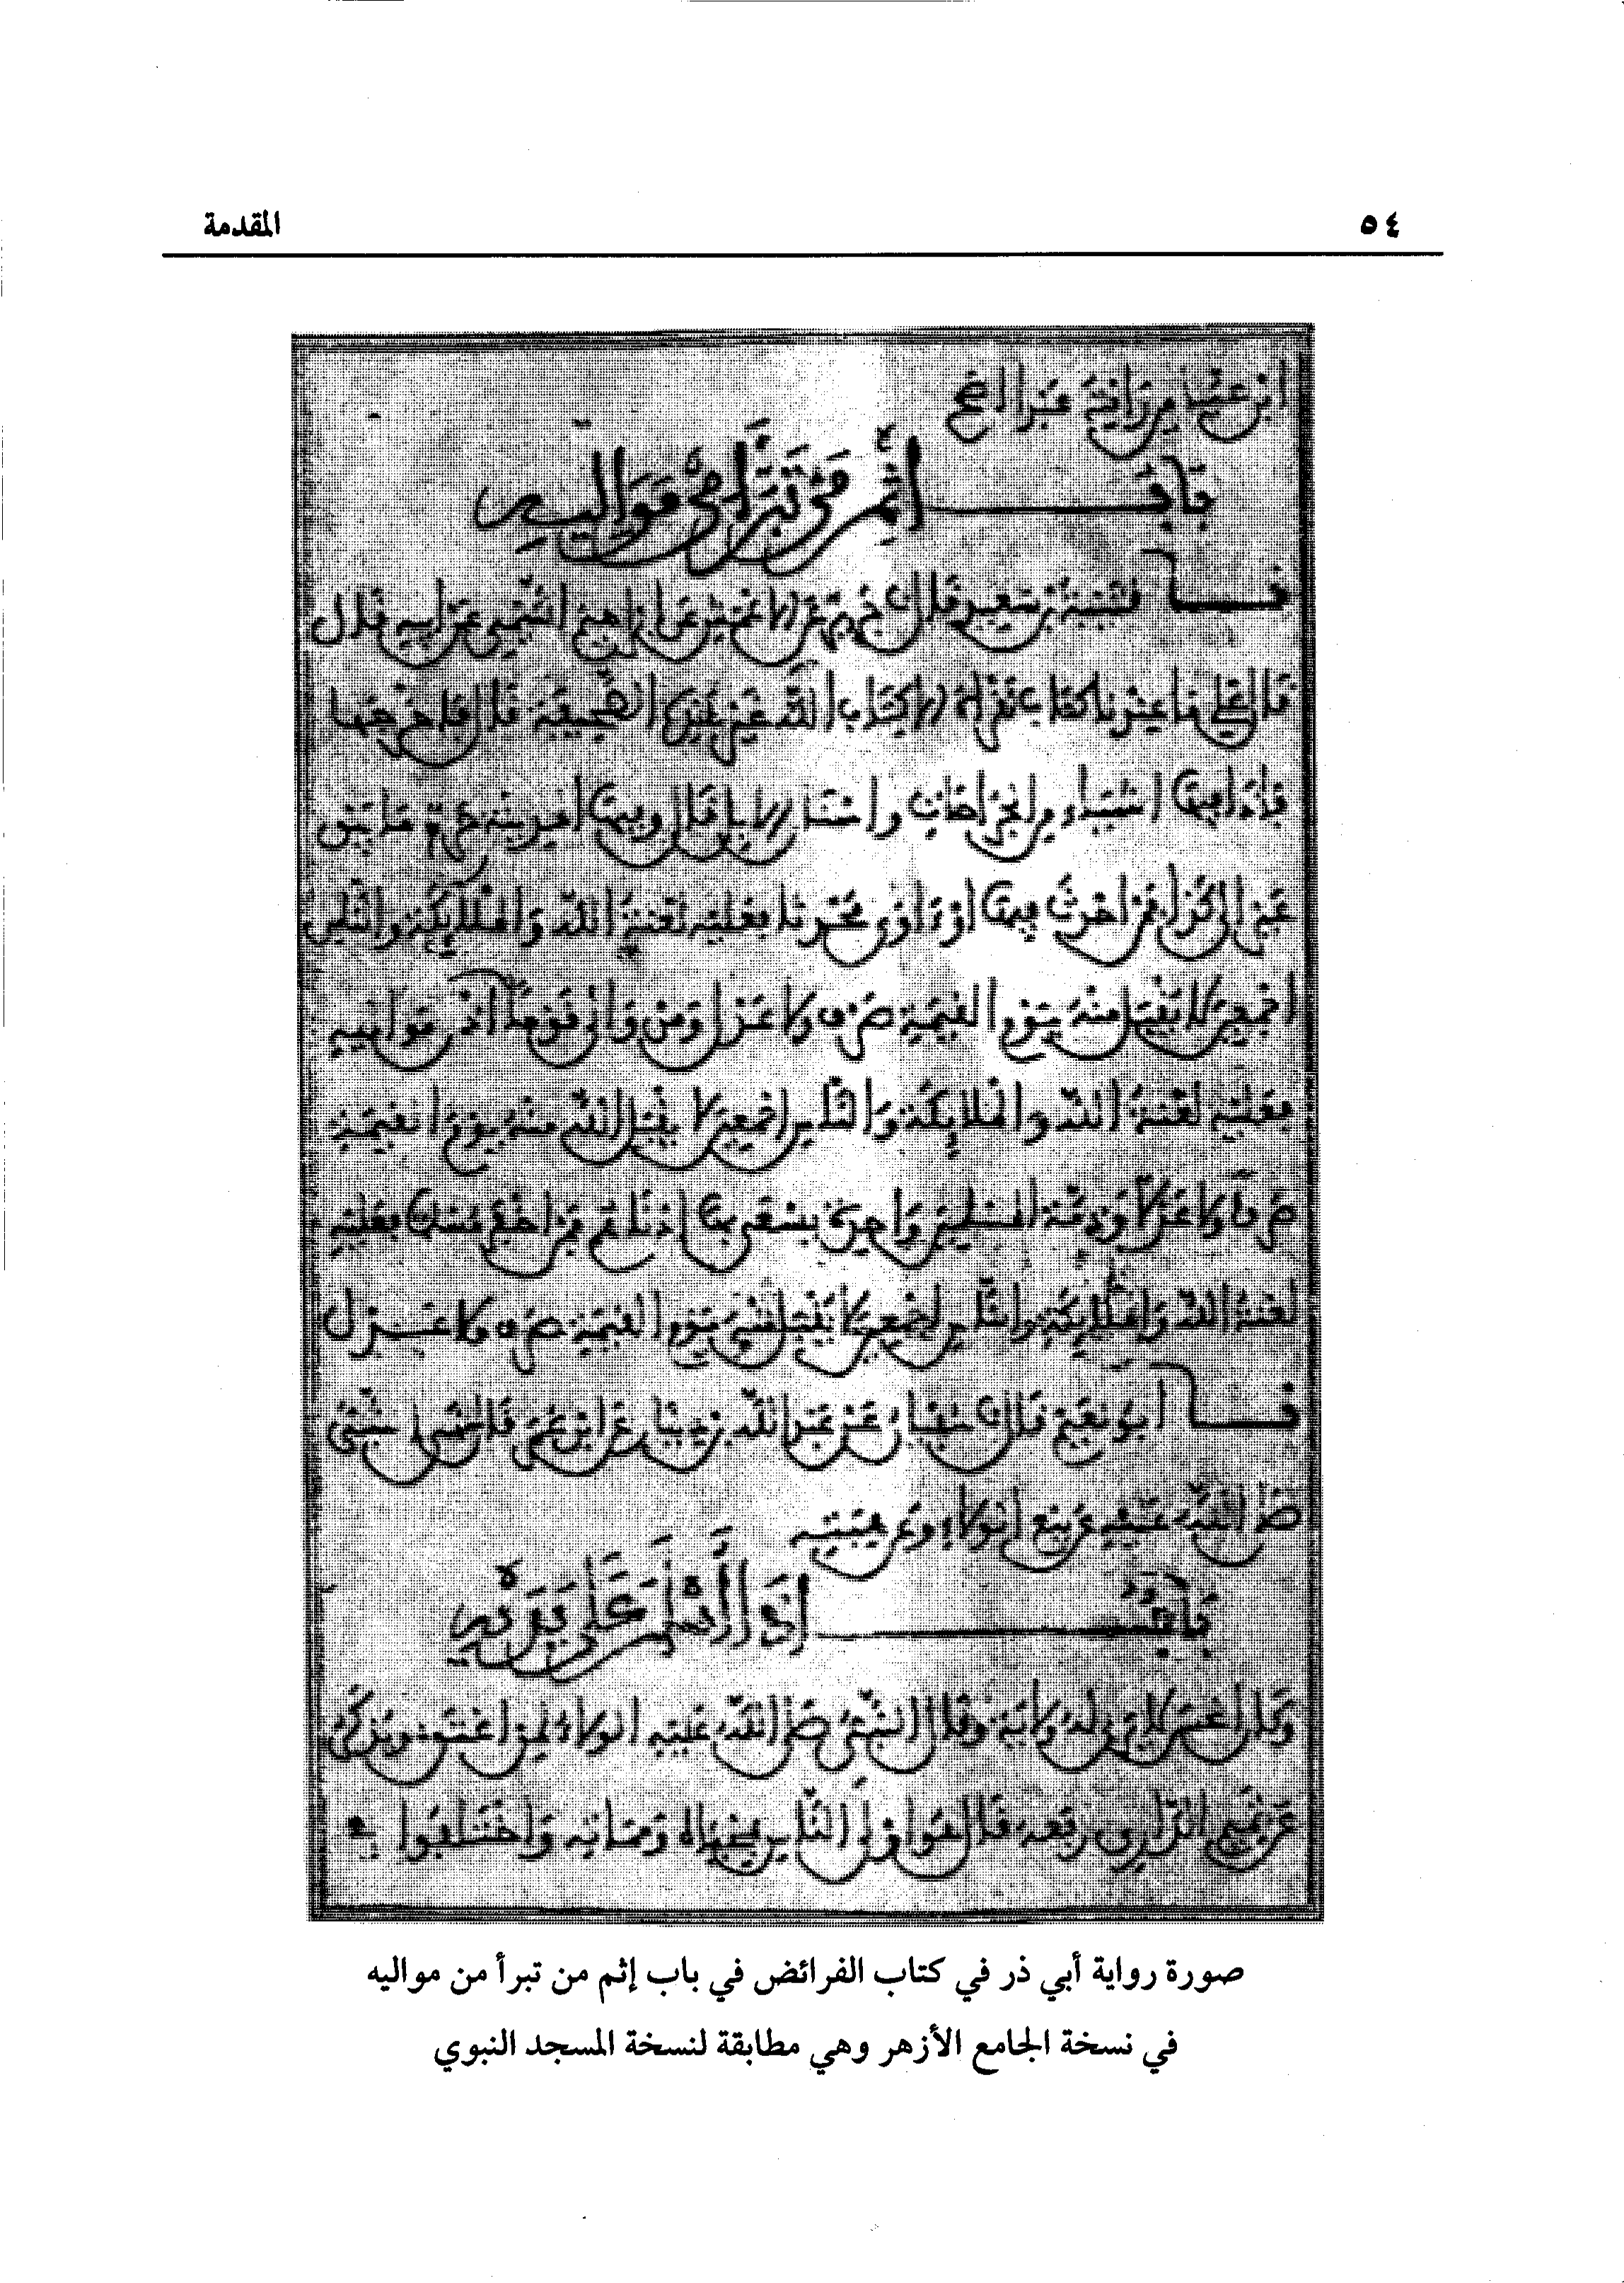 ٥٤
المقدمة
باب إثم من تبرأ من مواليه
قتيبة بن سعيد قال نا جرير عن الأعمش عن إبراهيم التيمي عن أبيه قال
قال علي ما عندنا كتاب نقرأه إلا كتاب الله غير هذه الصحيفة قال فأخرجها
فإذا فيها أشياء من الجراحات وأسنان الإبل قال وفيها المدينة حرم ما بين
عير إلى كذا فمن أحدث فيها أو آوى محدثا فعليه لعنة الله والملائكة والناس
أجمعين لا يقبل منه يوم القيمة صرف ولا عدل ومن والى قوما مواليه
فعليه لعنة الله والملائكة والناس أجمعين لا يقبل الله منه يوم القيمة
صرفا ولا عدلا وذمة المسلمين واحدة يسعى بها أدناهم فمن أخفر مسلما فعليه
لعنة الله والملائكة والناس أجمعين لا يقبل منه يوم القيمة صرف ولا عدل
أبو نعيم قال نا سفيان عن عبد الله بن دينار عن ابن عمر قال نهى النبي
صلى الله عليه عن بيع الولاء وعن هبته
باب إذا أسلم على يديه
وكان الحسن لا يرى له ولاية وقال النبي صلى الله عليه الولاء لمن أعتق ويذكر
عن تميم الداري رفعه قال هو أولى الناس بمحياه ومماته واختلفوا في
صورة رواية أبي ذر في كتاب الفرائض في باب إثم من تبرأ من مواليه
في نسخة الجامع الأزهر وهي مطابقة لنسخة المسجد النبوي